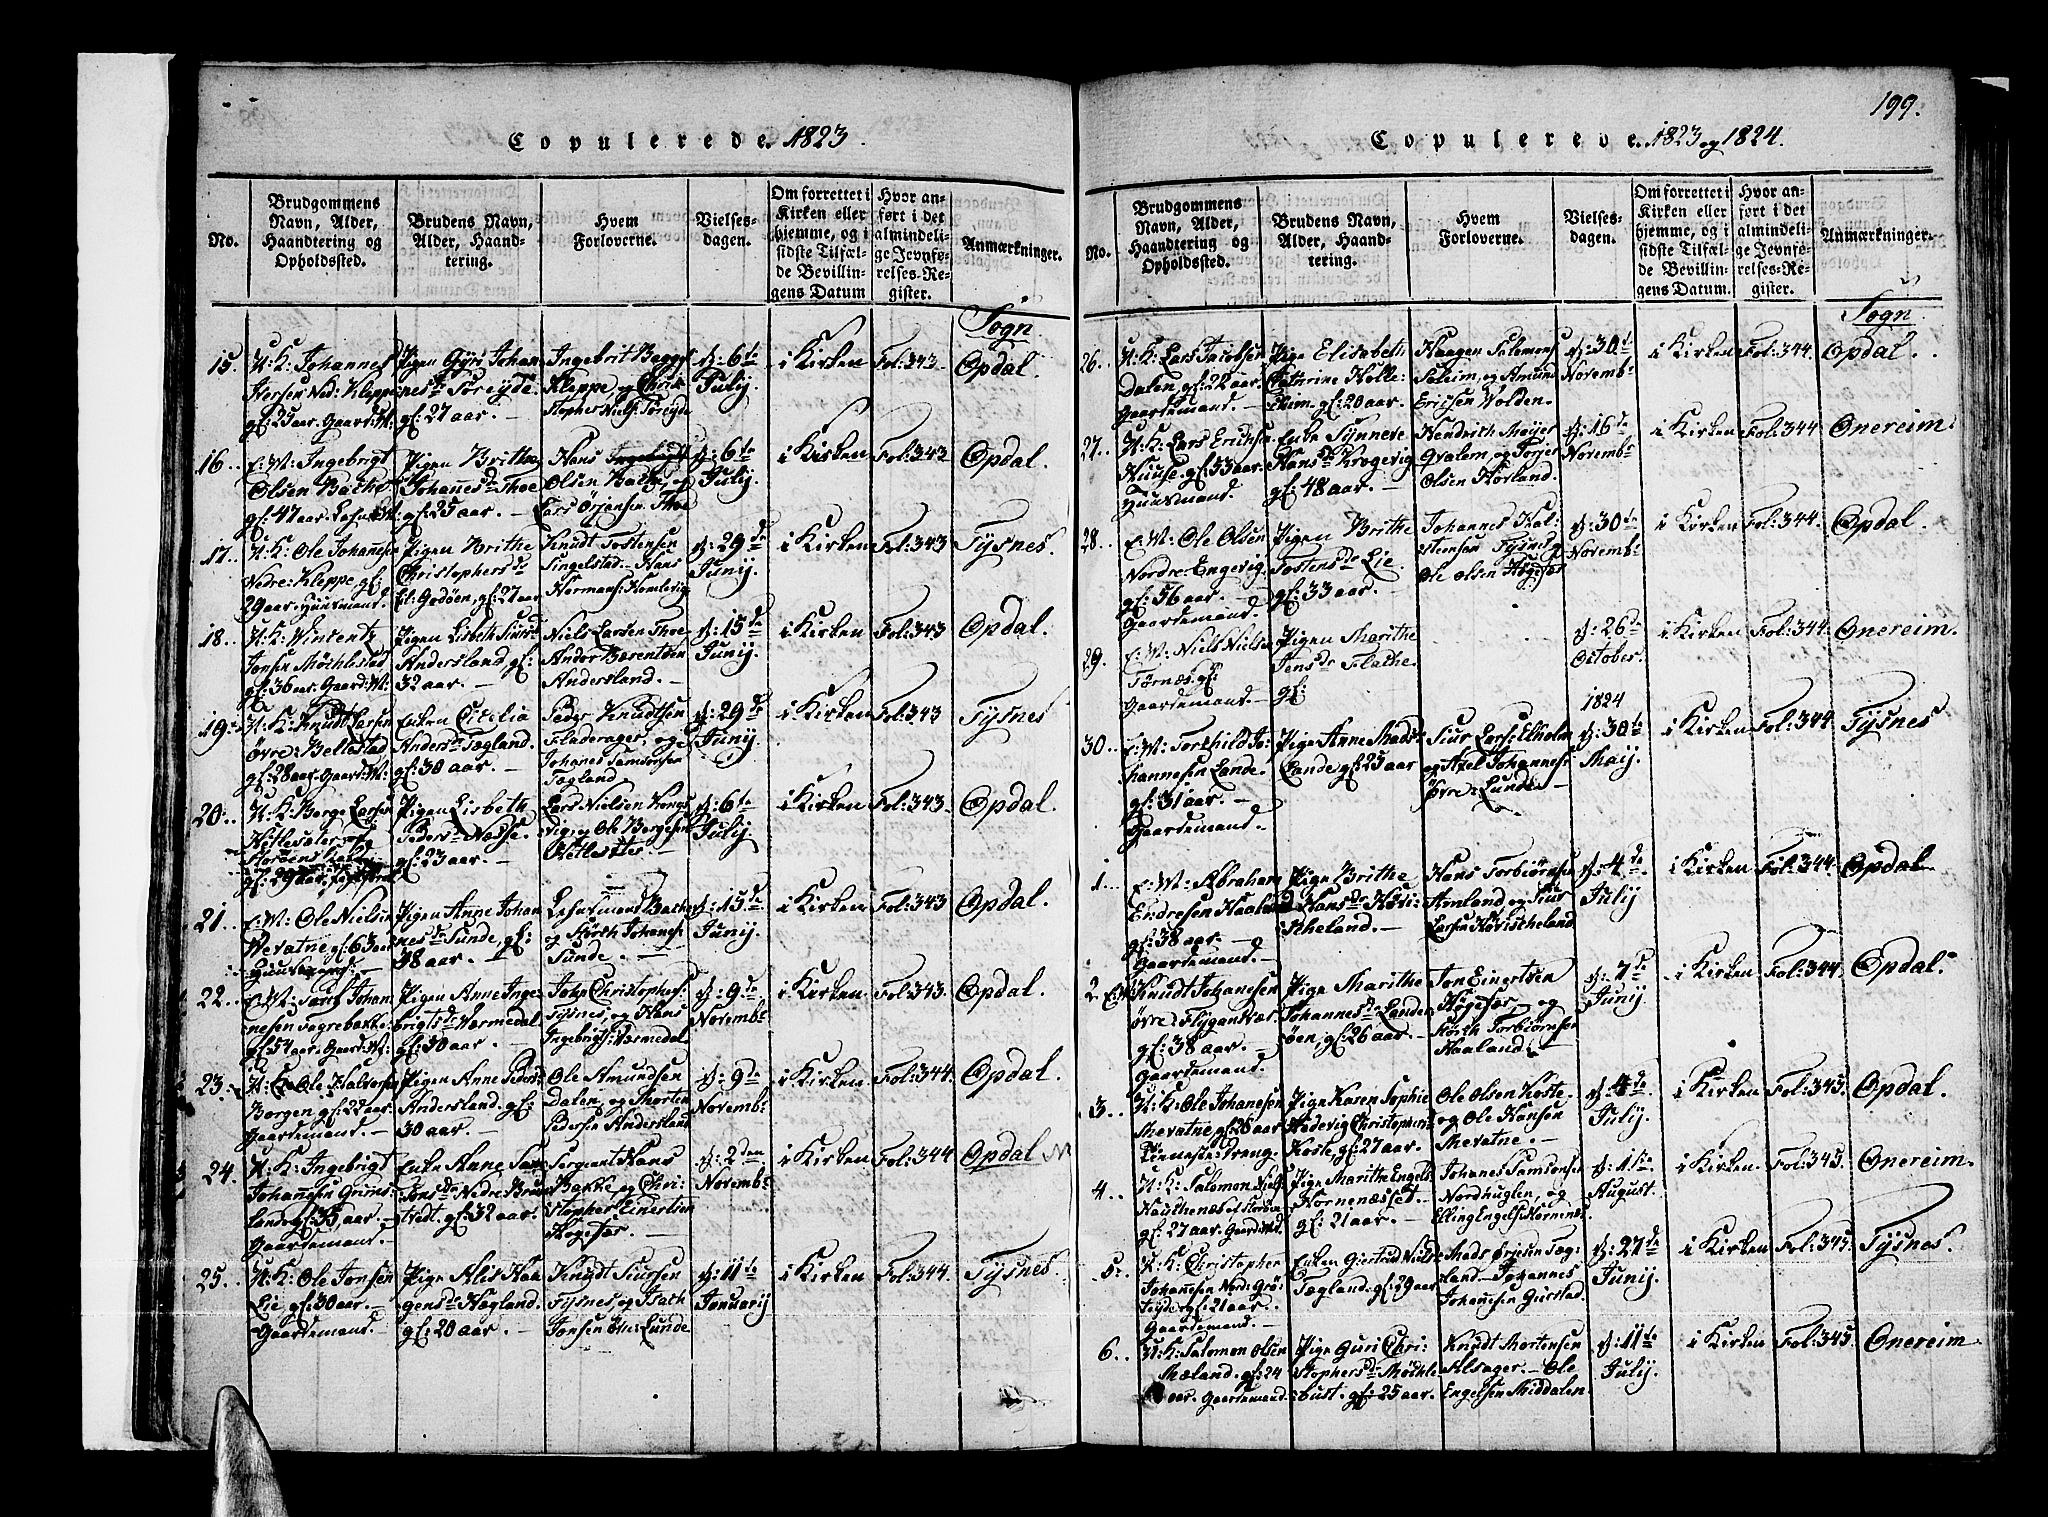 Copulerede. 1823.
No.
Brudgommens
Navn, Alder,
Haandtering og
Opholdssted.
Brudens Navn,
Alder, Haand-
tering.
Hvem
Forloverne.
Vielses-
dagen.
Om forrettet i
Kirken eller
hjemme, og i
sidste Tilfæl-
de Bevillin-
gens Datum
Hvor an-
ført i det
almindeli-
ge Jevnfø-
relses-Re-
gister.
Anmærkninger.
Sogn.
15.
U: K: Johannes
Iversen Ned: Kleppe
gl: 25 aar. Gaard: M:
Pigen Gyri Johan
nesdr Søreyde.
gl: 27 aar. —
Ingebrit Bagge
Kleppe, og Chri
stopher Niels: Søreyde
d: 6te
Julij.
i Kirken
Fol: 343.
Opdal.
16.
E: M: Ingebrigt
Olsen Bakke
gl: 47 aar.
Pigen Brithe
Johannesdr Thoe
gl: 25 aar. —
Hans
Olsen Bakke, og
Lars Ørjansen Thoe
d: 6te
Julij.
i Kirken
Fol: 343
Opdal.
17.
U: K: Ole Johannes:
Nedre: Kleppe gl:
29 aar. Huusmand.
Pigen Brithe
Christophersdr
Godøen, gl: 27 aar
Knudt Tostensen
Singelstad. — Hans
Hermans: Homlevig
d: 29de
Junij.
i Kirken
Fol: 343
Tysnes.
18.
U: K: Wintentz
Jonsen Møchlestad
gl: 36 aar. Gaard: M:
Pigen Lisbeth Siursdr
Andersland, gl:
32 aar. —
Niels Larsen Thoe
Ander Bærentsen
Andersland. —
d: 15de
Junij.
i Kirken
Fol: 343
Opdal.
19.
U: K: Knudt Larsen
øvre: Bellestad
gl: 28 aar. Gaard: M:
Enken Cicilia
Andersdr Tægland.
gl: 30 aar. —
Peder Knudtsen
Fladerager, og
Johanes Samsonsen
Tægland
d: 29de
Junij.
i Kirken
Fol: 343
Tysnes
20.
U: K: Børge Larsen
gl: 29 aar.
Pigen Lisbeth
Pedersdr Næsse.
gl: 23 aar. —
Lars Nielsen Kongs
vig, og Ole Børgesen
d: 6te
Julij.
i Kirken
Fol: 343.
Opdal.
21.
E: M: Ole Nielsen
Revatne gl: 63 aar
Huusmand. —
Pigen Anne Johan
nesdr Sunde, gl:
38 aar. —
Lehnsmand Bakke
og Hørth Johanes:
Sunde. —
d: 15de
Junij.
i Kirken
Fol: 343
Opdal.
22.
E: M: Johan
nesen Fagrebakke
gl: 54 aar. Gaard: M:
Pigen Anne Inge
brigtsdr Wermedal
gl: 30 aar. —
John Christophers:
Tysnes, og Hans
Ingebrigts: Wermedal
d: 9de
Novembr
i Kirken
Fol: 343.
Opdal.
23.
U: K: Ole Halvorsen
Borgen gl: 22 aar.
Gaardemand. —
Pigen Anne Peders:
Andersland. gl:
30 aar. —
Ole Amundsen
Dalen, og Morten
Pedersen Andersland
d: 9de
Novembr
i Kirken
Fol: 344.
Opdal.
24.
U: K: Ingebrigt
Johannesen Grims
land gl: 35 aar.
Gaardemand. —
Enke Anne Sam
sonsdr Nedre Bruun
tvedt. gl: 32 aar.
Sergeant Hans
Bakke, og Chri:
stopher Einertsen
Høgefær. —
d: 2den
Novembr
i Kirken
Fol: 344
Opdal
25.
U: K: Ole Jonsen
Lie, gl: 30 aar. —
Gaardemand. —
Pige Alis Haa
gensdr Hægland.
gl: 20 aar. —
Knudt Siursen
Tysnes, og Isach
Jonsen Øvre Lunde
d: 11te
Januarij
i Kirken
Fol: 344.
Tysnes.
199.
Copulerede. 1823 og 1824.
No.
Brudgommens
Navn, Alder,
Haandtering og
Opholdssted.
Brudens Navn,
Alder, Haand-
tering.
Hvem
Forloverne.
Vielses-
dagen.
Om forrettet i
Kirken eller
hjemme, og i
sidste Tilfæl-
de Bevillin-
gens Datum.
Hvor an-
ført i det
almindeli-
ge Jevnfø-
relses-Re-
gister.
Anmærkninger.
Sogn.
26.
U: K: Lars Jacobsen
Dalen, gl: 22 aar.
Gaardemand. —
Pige Elisabeth
Cathrine Holle
Ehim. gl: 20 aar.
Haagen Salomons:
Søleim, og Amund
Ericksen Wolden.
d: 30te
Novembr
i Kirken
Fol: 344.
Opdal.
27.
U: K: Lars Ericksen
Huuse. gl: 33 aar.
Huusmand.
Enke Synneve
Hansdr Krogevig
gl: 48 aar. —
Hendrich Meyer
Gvalem, og Torjer
Olsen Hørland.
d: 16de
Novembr
i Kirken
Fol: 344
Onereim.
28.
E: M: Ole Olsen
Nordre: Engevig.
gl: 56 aar. —
Gaardemand.
Pigen Brithe
Tostensdr Lie.
gl: 33 aar. —
Johannes Hal:
stensen Tysnes
Ole Olsen Høgefær
d: 30te
Novembr
i Kirken
Fol: 344.
Opdal.
29.
E: M: Niels Niels:
Tørnæs. gl:
Gaardemand. —
Pigen Marithe
Jensdr Flathe.
gl:
d: 26de
October.
i Kirken
Fol: 344.
Onereim.
1824
30.
E: M: Torchild Jo:
hannesen Lande.
gl: 31 aar. —
Gaardemand. —
Pige Anne Madsdr
Lande gl: 25 aar
Siur Lars: Elholm
og Axel Johannes:
Øvre: Lunde —
d: 30te
Maij.
i Kirken
Fol: 344.
Tysnes
1.
E: M: Abraham
Endresen Haaland
gl: 38 aar. —
Gaardemand. —
Pige Brithe
Hansdr Hovi:
scheland. —
Hans Torbiørnsen
Arnland, og Siur
Larsen Hovischeland
d: 4de
Julij
i Kirken
Fol: 344.
Opdal
2.
Knudt Johanesen
øvre: Flygansvær
gl: 38 aar. —
Gaardemand.
Pige Marithe
Johannesdr Lande
øen, gl: 26 aar —
Jon Einertsen
Høgefær, og
Hørth Torbiørnsen
Haaland. —
d: 7de
Junij
i Kirken
Fol: 344.
Opdal.
3.
U: K: Ole Johanesen
Mevatne gl: 26 aar
Tienestedreng
Pige Karen Sophie
Hedevig Christophers:
Koste, gl: 27 aar.
Ole Olsen Koste
og Ole Hansen
Mevatne. —
d: 4de
Julij.
i Kirken
Fol: 345.
Opdal.
4.
U: K: Salomon
gl: 27 aar. Gaardmd
Pige Marithe Engels:
Hornenæsset. —
gl: 21 aar. —
Johanes Samsonsen
Nordhuglen, og
Elling Engels: Hornenæs.
d: 1ste
August.
i Kirken
Fol: 345.
Onereim.
5.
U: K: Christopher
Johannesen
gl: 21 aar.
Gaardemand. —
Enken Giertrud Nielsdr
Tægland. gl: 29 aar
Mads Ørjesen Tæg:
land — Johannes
Johannesen Gierstad.
d: 27de
Junij.
i Kirken
Fol: 345.
Tysnes.
6.
U: K: Salomon Olsen
Mæland. gl: 24
aar. Gaardemand.
Pige Guri Chri:
stophersdr Møchle
bust. gl: 25 aar.
Knudt Mortensen
Alsager. — Ole
Engelsen Middalen
d: 11te
Julij.
i Kirken
Fol: 345.
Onereim